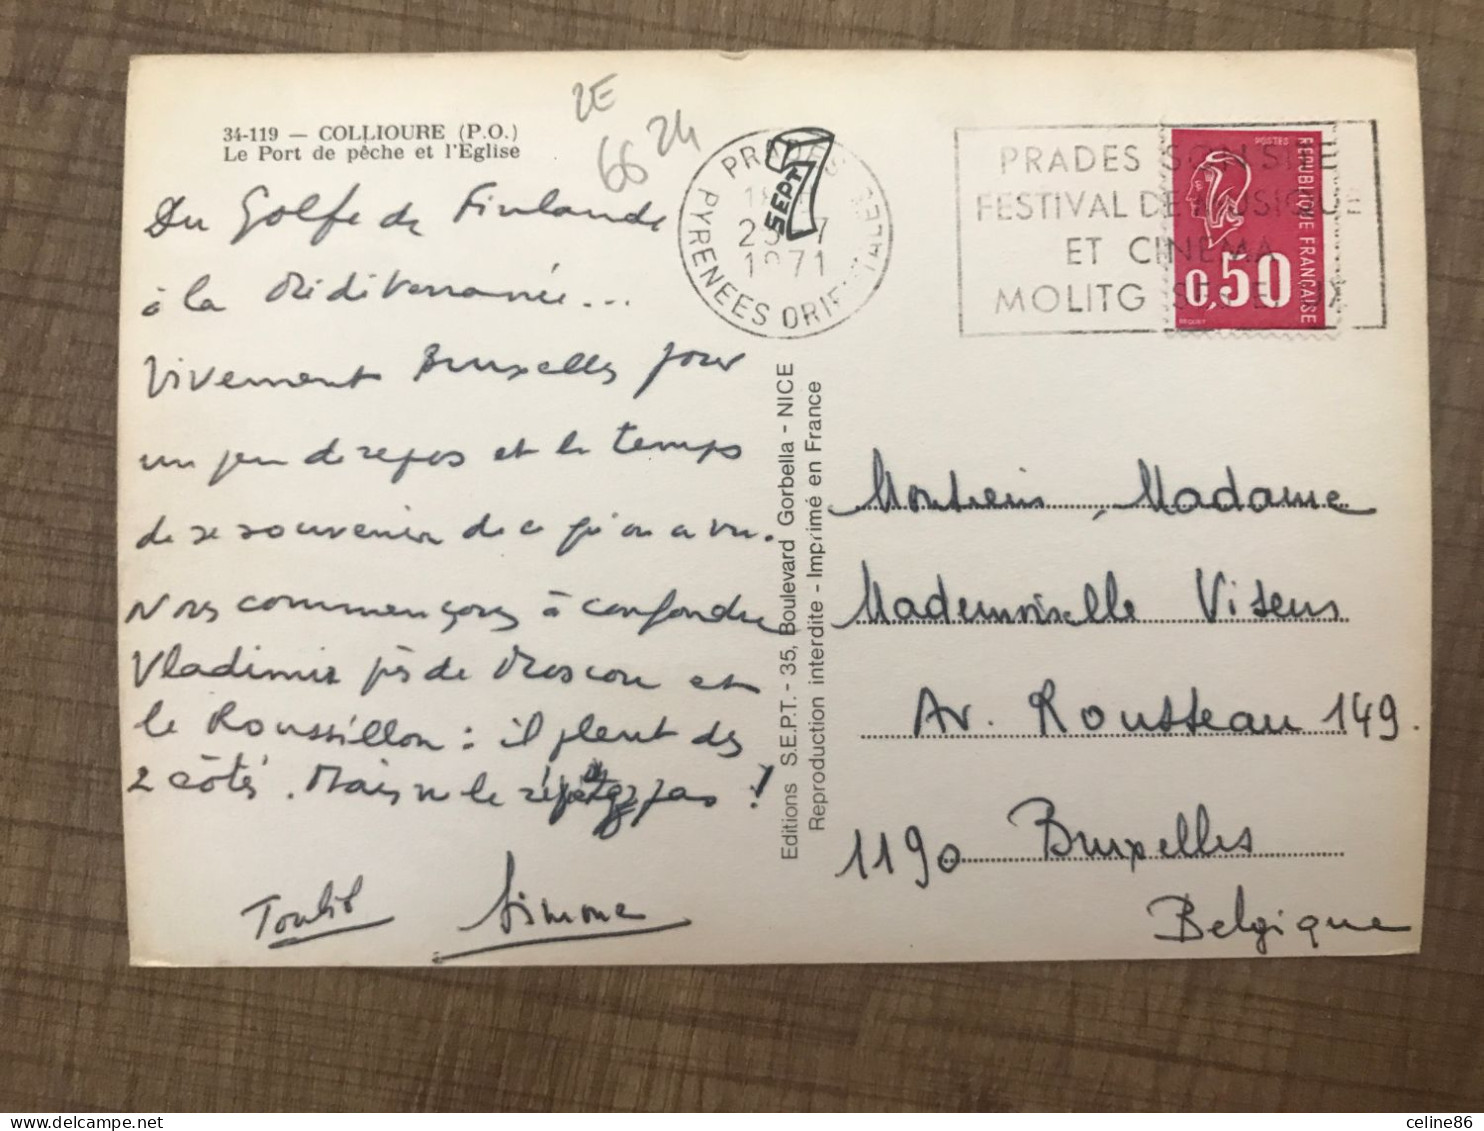 34-119 — COLLIOURE (P.O.)
Le Port de pêche et l'Eglise
2E
66 24
Du Golfe de Finlande
à la Méditerranée...
Vivement Bruxelles pour
un peu de repos et le temps
de se souvenir de ce qu'on a vu.
Nous commençons à confondre
Vladimir près de Moscou et
le Roussillon : il pleut des
2 côtés. Mais ne le répétez pas !
Simone
PRADES
PYRENEES ORIENTALES
18
1971
7
SEPT
PRADES SON SITE
FESTIVAL DE MUSIQUE
ET CINEMA
MOLITG
POSTES
REPUBLIQUE FRANÇAISE
0,50
Editions S.E.P.T. - 35, Boulevard Gorbella - NICE
Reproduction interdite - Imprimé en France
Monsieur, Madame
Mademoiselle Visens
Av. Rousseau 149.
1190 Bruxelles
Belgique
celine86